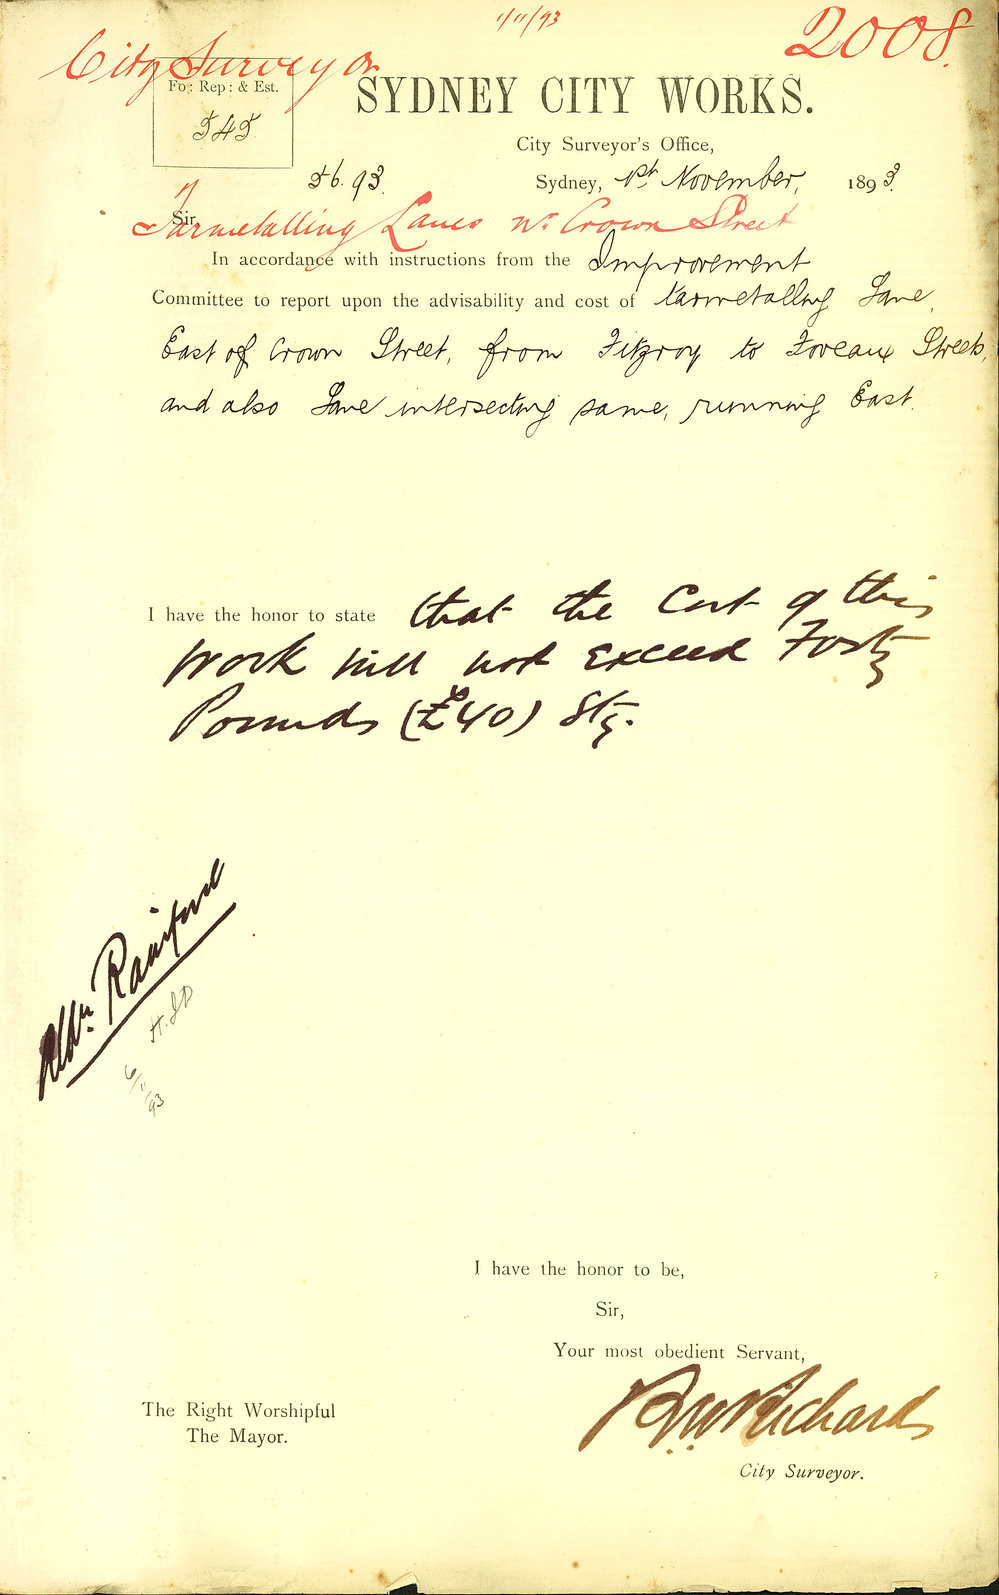 1/11/93
2008.
City Surveyor
Fo: Rep: & Est.
545
SYDNEY CITY WORKS.
City Surveyor's Office,
56.93.
Sydney, 1st November, 1893.
Sir,
Tarmetalling Lanes nr. Crown Street
In accordance with instructions from the Improvement
Committee to report upon the advisability and cost of tarmetalling Lane,
East of Crown Street, from Fitzroy to Foveaux Streets,
and also Lane intersecting same, running East.
I have the honor to state that the Cost of this
Work will not exceed Forty
Pounds (£40) Stg.
Aldn. Rainford
6/11/93
I have the honor to be,
Sir,
Your most obedient Servant,
RWRichards
City Surveyor.
The Right Worshipful
The Mayor.